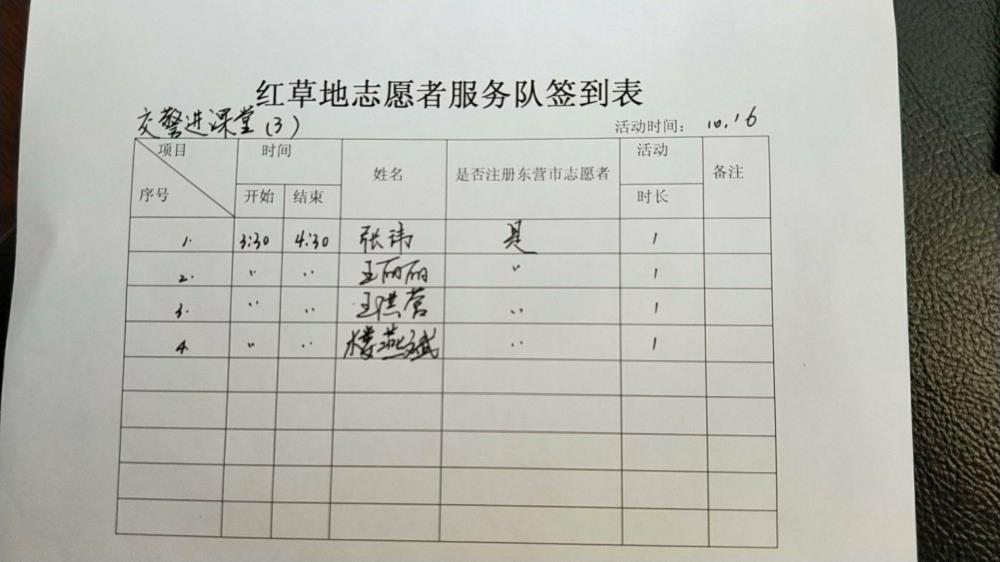 红草地志愿者服务队签到表
交警进课堂(3) 活动时间: 10.16
项目 时间 姓名 是否注册东营市志愿者 活动 备注
序号 开始 结束 时长
1. 3:30 4:30 张玮 是 1
2. 〃 〃 王丽丽 〃 1
3. 〃 〃 王洪营 〃 1
4. 〃 〃 楼燕斌 〃 1